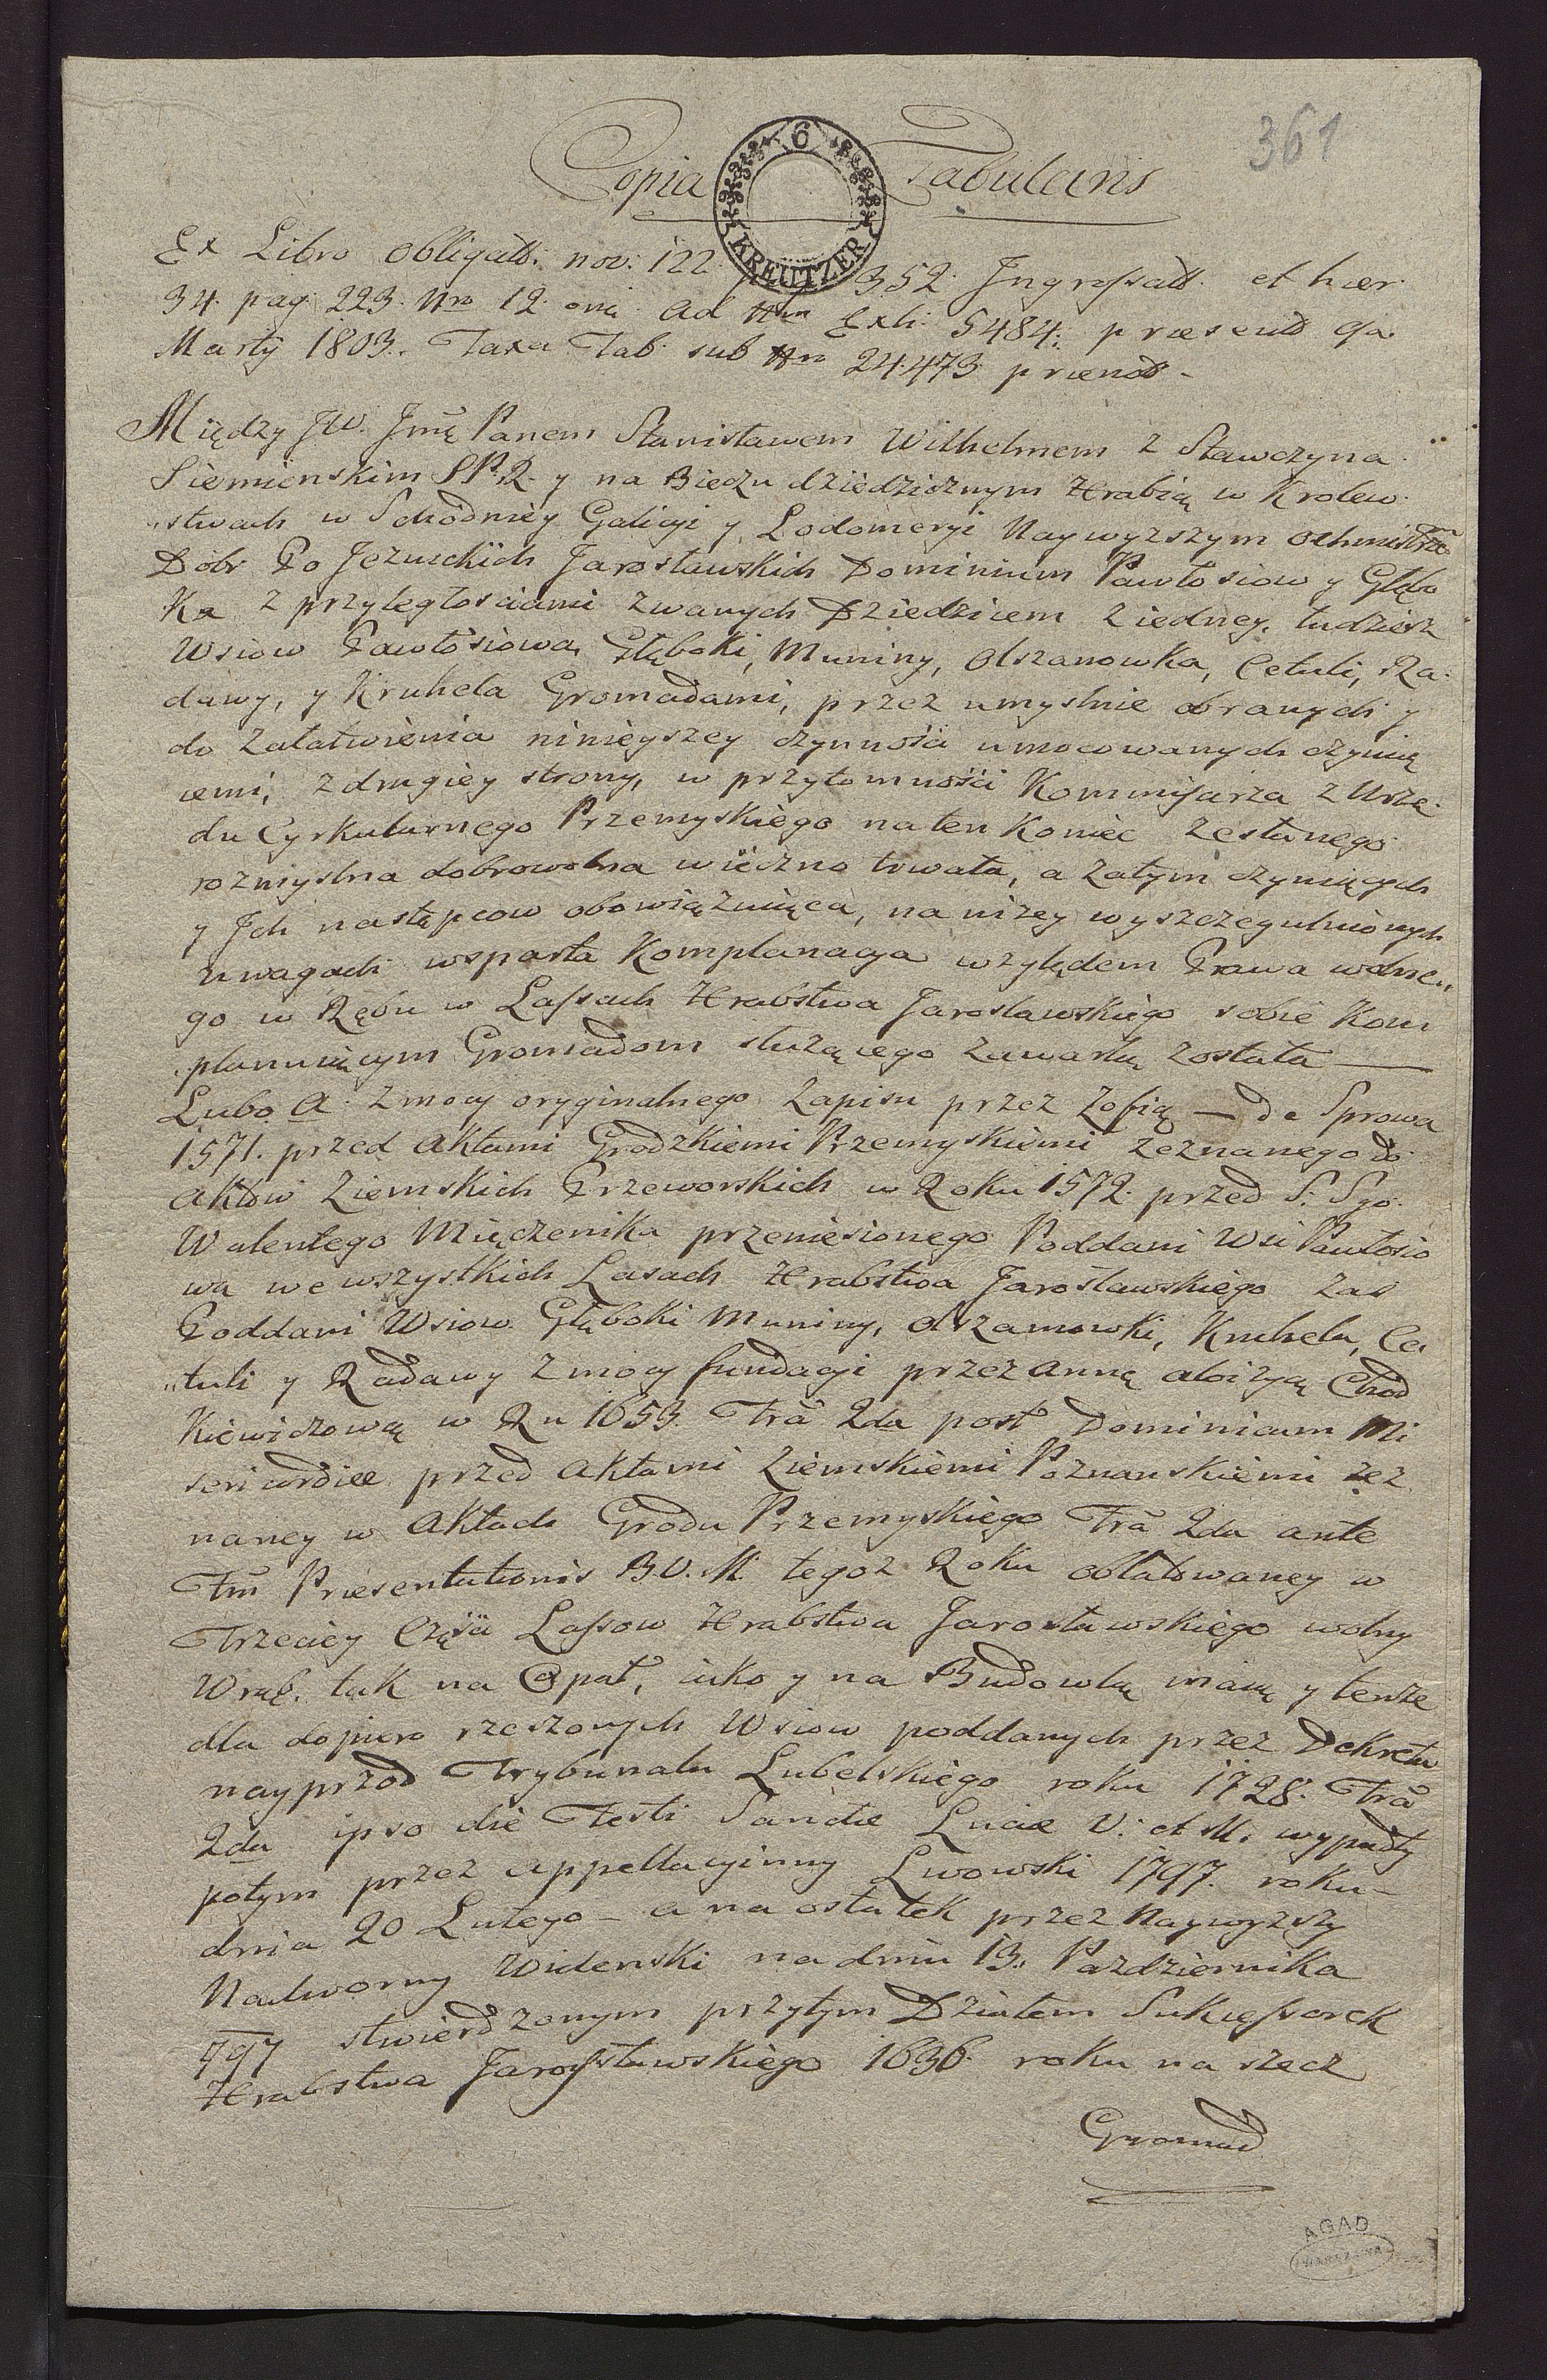 361
Copia Tabularis
6
KREUTZER
Ex Libro obligatt: nov: 122. pag 352. Ingrossatt. et haer.
34. pag. 223. Nro 12. oni. ad Nrm Exhi. 5484: praesent 9a
Martij 1803. Taxa Tab. sub Nro 24.473. praenot.
Między JW. Jmę Panem Stanisławem Wilhelmem z Stawczyna
Siemienskim S.P.R. y na Bieczu dziedzicznym Hrabią w Krolew-
„stwach w Schodniey Galicyi y Lodomeryi Naywyzszym Ochmistrze
Dobr Po Jezuickich Jarosławskich Dominium Pawłosiow y Głębo
Ka z przyległosciami zwanych Dziedzicem z iedney, tudziesz
Wsiow Pawłosiowa, Głęboki, Muniny, Olszanowka, Cetuli, Ra-
dawy, y Kruhela Gromadami, przez umyslnie obranych y
do załatwienia ninieyszey czynnosci umocowanych czynią
cemi, z drugiey strony, w przytomności Kommisarza z Urzę-
du Cyrkularnego Przemyskiego na ten Koniec zesłanego
rozmyslna dobrowolna wieczno trwała, a zatym czyniących
y Jch następcow obowiązuiąca, na nizey wyszczegulnionych
uwagach wsparta Komplanacya względem Prawa wolne„
go w Rębu w Lassach Hrabstwa Jarosławskiego sobie Kom
planuiącym Gromadom służącego zawartą została —
Lubo a. z mocy oryginalnego zapisu przez Zofią — de Sprowa
1571. przed Aktami Grodzkiemi Przemyskiemi zeznanego do
Aktow Ziemskich Przeworskich w Roku 1572. przed S. Sgo.
Walentego Męczenika przeniesionego Poddani Wsi Pawłosio
wa we wszystkich Lasach Hrabstwa Jarosławskiego zas
Poddani Wsiow Głęboki Muniny, Olszamowki, Kruhela, Ce
„tuli y Radawy z mocy fundacyi przez Anną Aloizyą Chod
Kiewiczową w Ru 1653. Fra 2da post Dominicam Mi
sericordiae przed Aktami Ziemskiemi Poznanskiemi zez
naney w Aktach Grodu Przemyskiego Fra 2da ante
Fm Praesentationis B.V.M. tegoz Roku oblatowaney w
Trzeciey Części Lassow Hrabstwa Jarosławskiego wolny
Wrąb, tak na Opał, iako y na Budowlą maią y tenze
dla dopiero rzeczonych Wsiow poddanych przez Dekreta
nayprzod Trybunału Lubelskiego roku 1728. Fra
2da ipso die Festi Sanctae Luciae V: et M. wypadły
potym przez Appellacyinny Lwowski 1797. roku —
dnia 20 Lutego — a na ostatek przez Naywyzszy
Nadworny Widenski na dniu 13. Pazdziernika
797 stwierdzonym przytym Działem Sukcessorek
Hrabstwa Jarosławskiego 1636. roku na rzecz
Gromad
AGAD
WARSZAWA